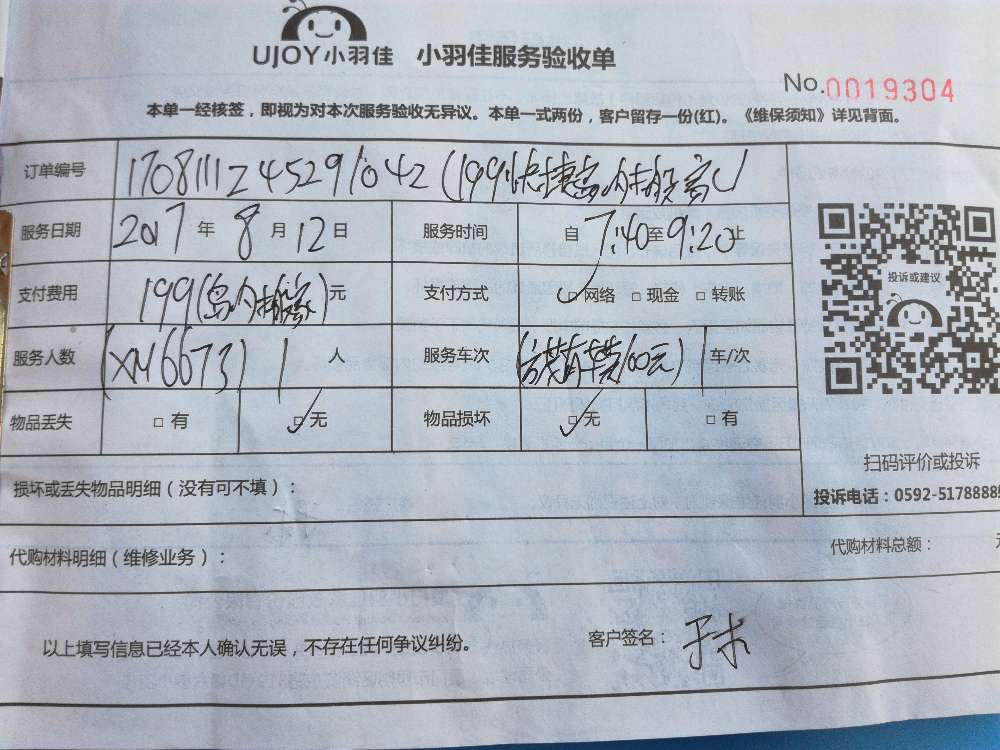 UJOY小羽佳 小羽佳服务验收单
No.0019304
本单一经核签，即视为对本次服务验收无异议。本单一式两份，客户留存一份(红)。《维保须知》详见背面。
订单编号 1708111245291042 (199快捷岛内搬家)
服务日期 2017 年 8 月 12 日 服务时间 自 7:40 至 9:20 止
支付费用 199(岛内搬家) 元 支付方式 □ 网络 □ 现金 □ 转账
投诉或建议
服务人数 (XM6673) 1 人 服务车次 60元) 1 车/次
物品丢失 □ 有 □ 无 物品损坏 □ 无 □ 有
扫码评价或投诉
损坏或丢失物品明细（没有可不填）：
投诉电话：0592-5178888
代购材料明细（维修业务）： 代购材料总额：
以上填写信息已经本人确认无误，不存在任何争议纠纷。 客户签名：